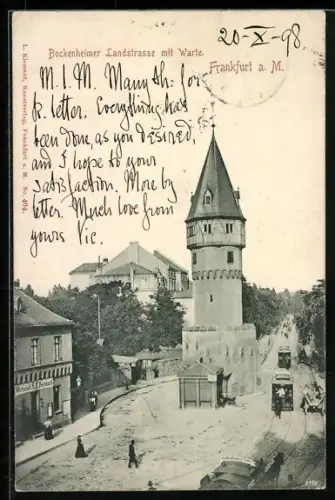 Bockenheimer Landstrasse mit Warte.
20-X-98
Frankfurt a. M.
M. I. M. Many th: for
k. letter. Everything has
been done, as you desired,
and I hope to your
satisfaction. More by
letter. Much love from
yours Vic.
L. Klement, Kunstverlag, Frankfurt a. M. No. 404.